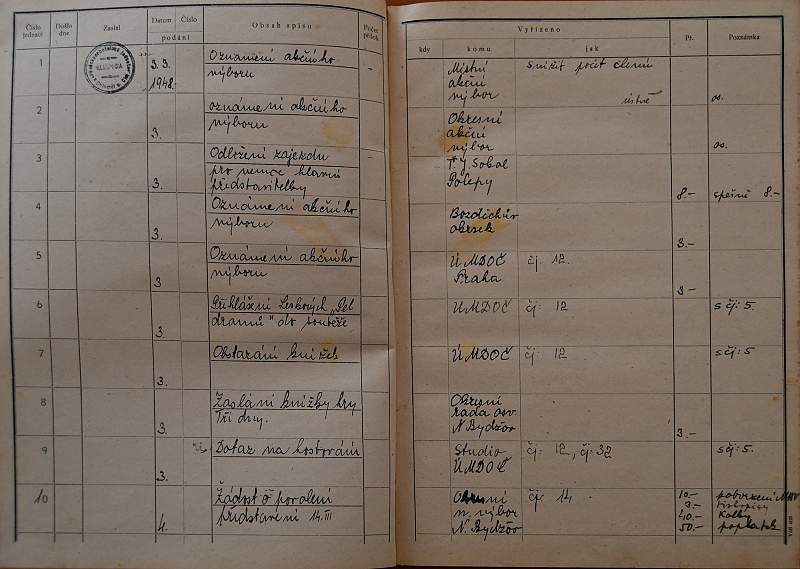 Číslo jednací
Došlo dne
Zaslal
Datum
Číslo
podání
Obsah spisu
Počet příloh
Vyřízeno
kdy
komu
jak
Př.
Poznámka
1
3. 3.
1948.
Oznámení akčního
výboru
–
Místní
akční
výbor
snížit počet členů
ústně
os.
2
3.
oznámení akčního
výboru
Okresní
akční
výbor
os.
3
3.
Odložení zájezdu
pro nemoc hlavní
představitelky
–
T. J. Sokol
8.–
spěšně 8.–
4
3.
Oznámení akčního
výboru
okrsek
3.–
5
3
Oznámení akčního
výboru
ÚMDOČ
Praha
čj. 12.
3–
6
3.
do soutěže
ÚMDOČ
čj: 12
s čj: 5.
7
3.
Obstarání knížek
ÚMDOČ
čj: 12
s čj: 5
8
3.
Zaslání knížky hry
Tři dny.
Okresní
rada osv.
N. Bydžov
3.–
9
3.
Dotaz na hostování
Studio
ÚMDOČ
čj: 12, čj: 32
s čj: 5.
10
4.
Žádost o povolení
představení 14. III
Okresní
n. výbor
N. Bydžov
čj: 14
10.–
3.–
40.–
Kolky
50.–
poplatek